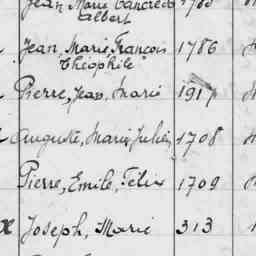 Jean Marie Tancrède
Albert
Jean, Marie, Francois 1786
Théophile
Pierre, Jean, Marie 1917
Auguste, Marie, Julien 1708
Pierre, Emile, Félix 1709
Joseph, Marie 313